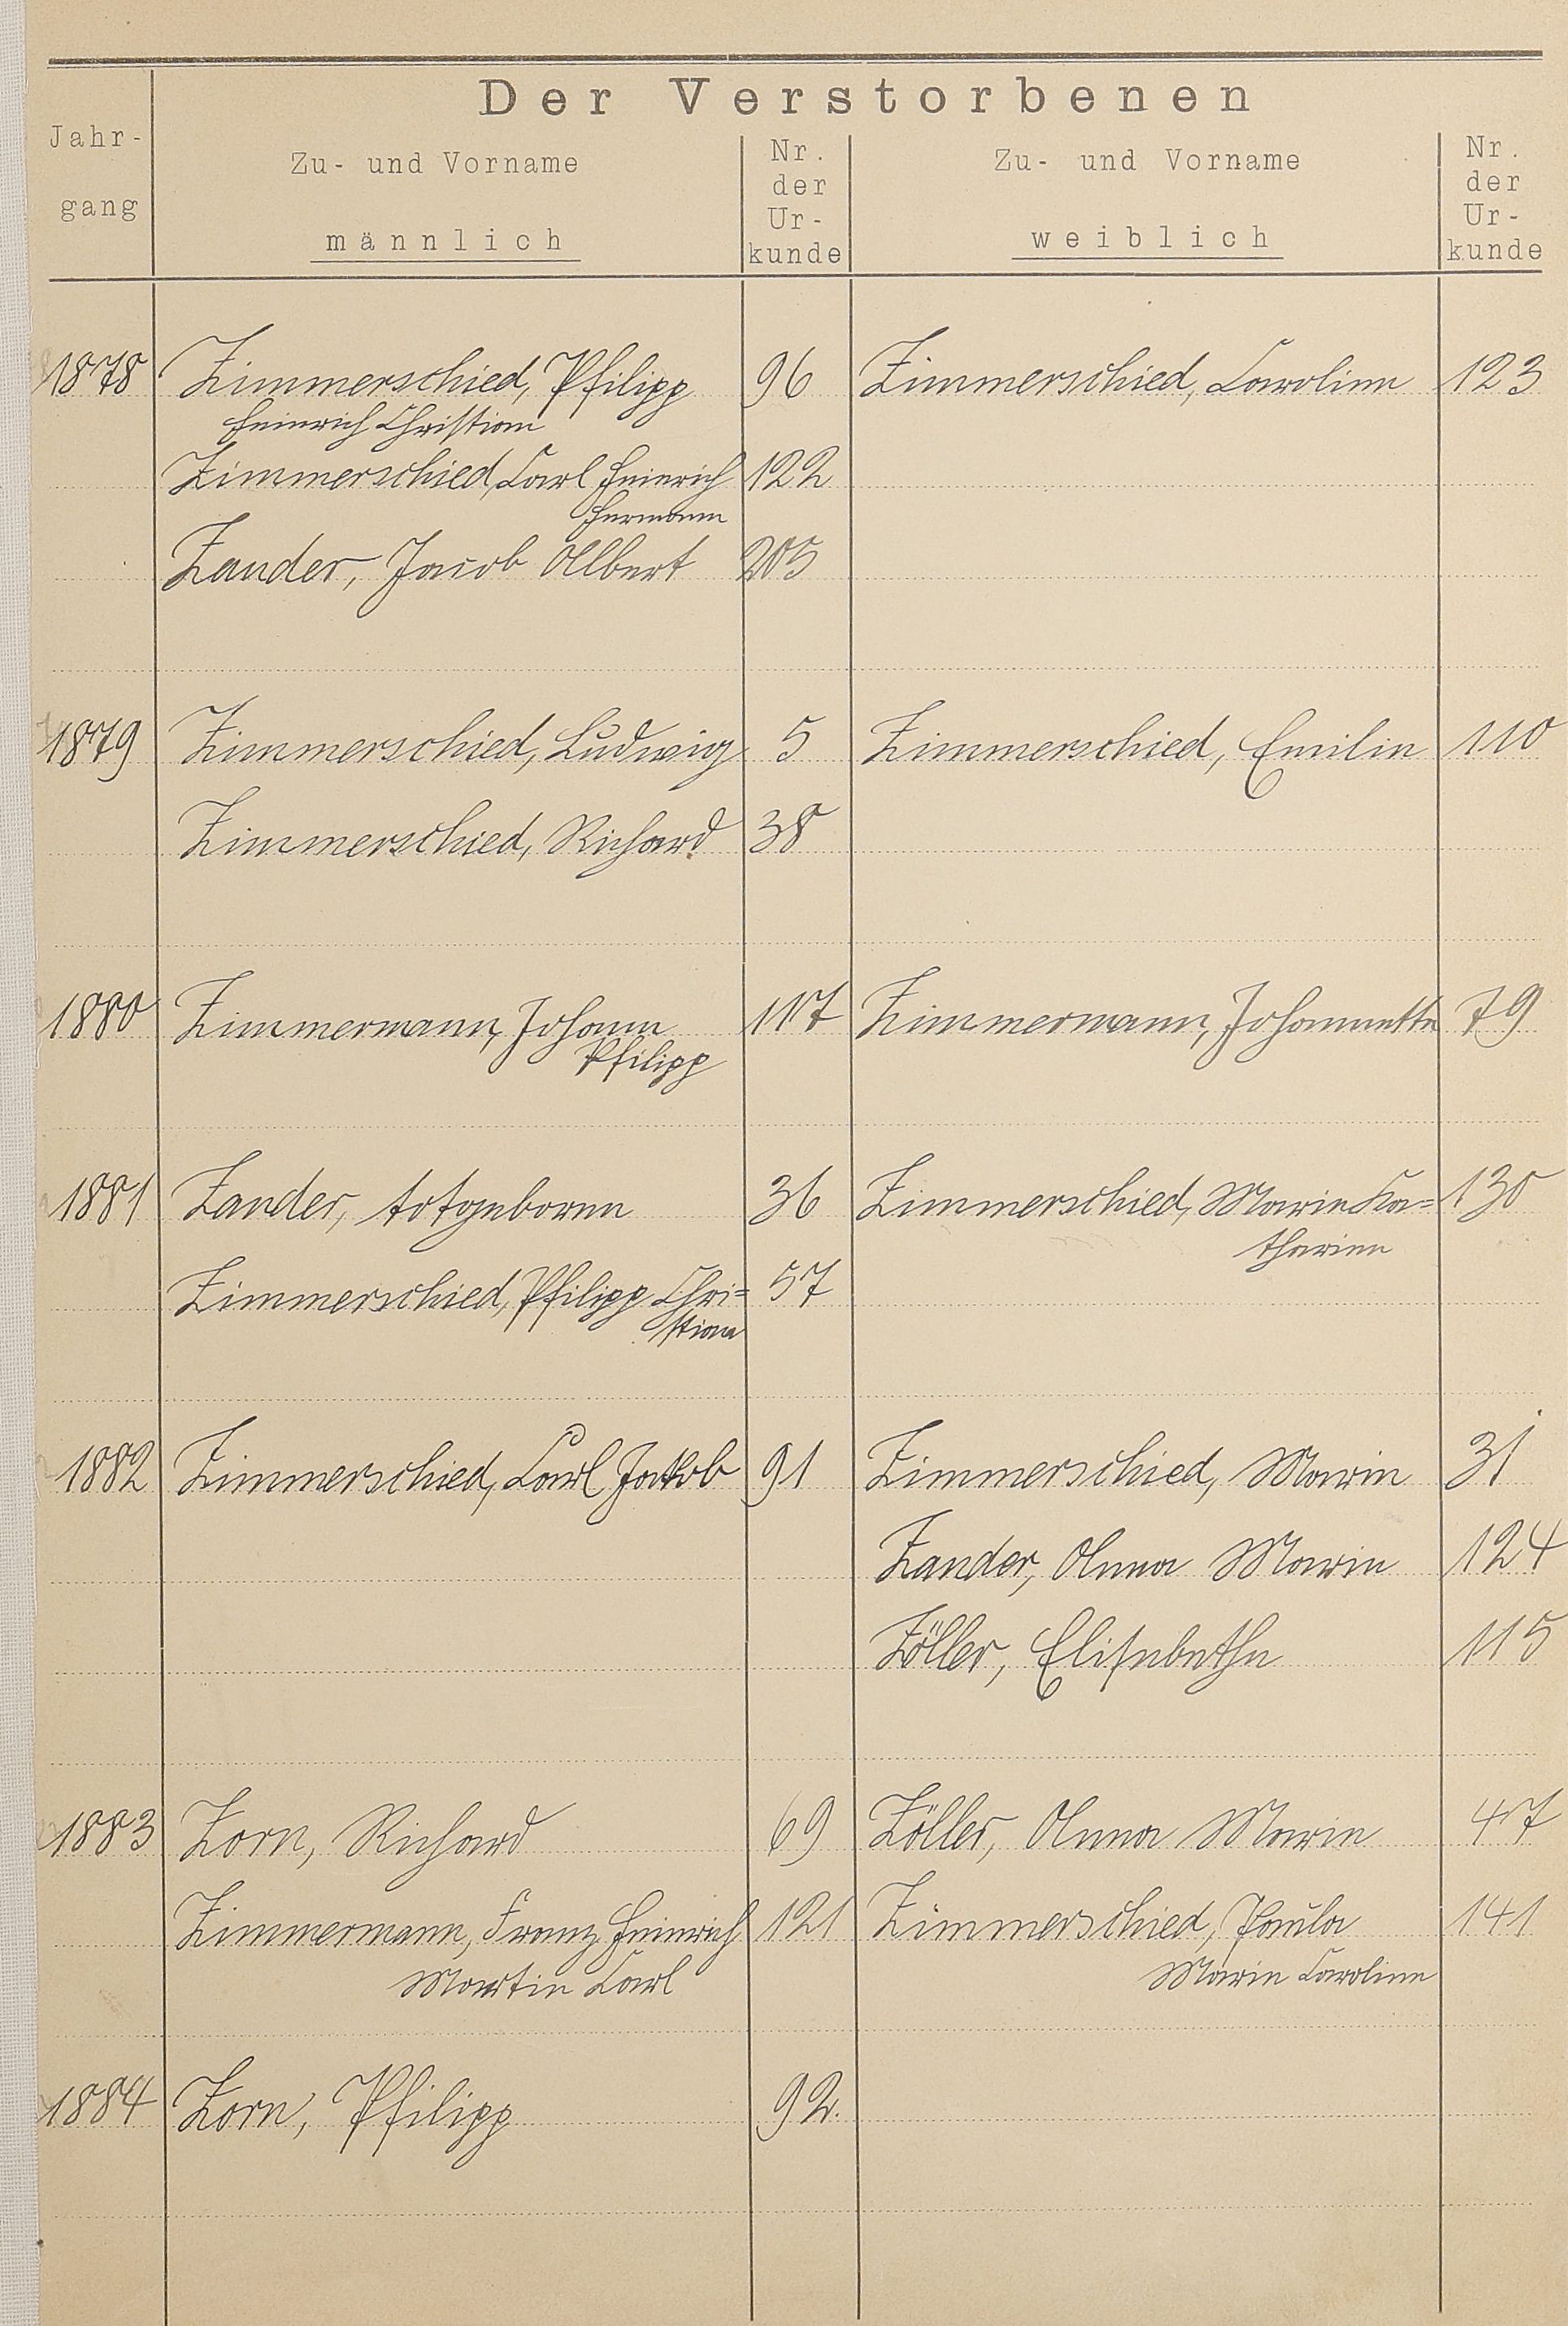 Der Verstorbenen
Jahr-
gang
Zu- und Vorname
männlich
Nr.
der
Ur-
kunde
Zu- und Vorname
weiblich
Nr.
der
Ur-
kunde
1878 Zimmerschied, Philipp 96 Zimmerschied, Caroline 123
Heinrich Christian
Zimmerschied, Carl Heinrich 122
Hermann
Zander, Jacob Albert 205
1879 Zimmerschied, Ludwig 5 Zimmerschied, Emilie 110
Zimmerschied, Richard 38
1880 Zimmermann, Johann 117 Zimmermann, Johannette 79
Philipp
1881 Zander, totgeboren 36 Zimmerschied, Marie Ka= 130
tharine
Zimmerschied, Philipp Chri= 57
stian
1882 Zimmerschied, Carl Jakob 91 Zimmerschied, Marie 31
Zander, Anna Marie 124
Zöller, Elisabethe 115
1883 Zorn, Richard 69 Zöller, Anna Marie 47
Zimmermann, Franz Heinrich 121 Zimmerschied, Paula 141
Martin Carl Marie Caroline
1884 Zorn, Philipp 92.